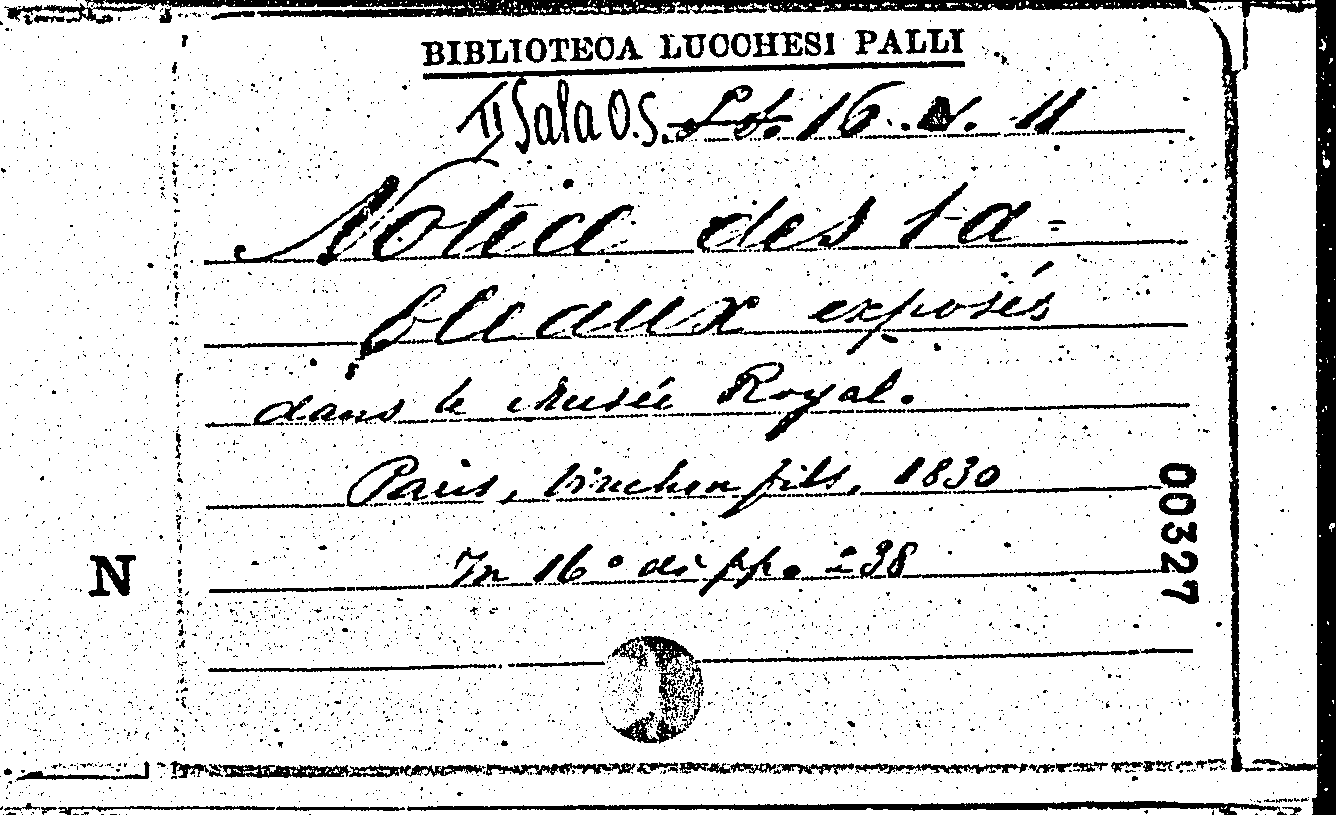 BIBLIOTECA LUCCHESI PALLI
II Sala O.S. 16. 11
Notice des ta=
bleaux exposés
dans le Musée Royal.
Paris, Vinchon fils, 1830
In 16° di pp. 238
N
00327